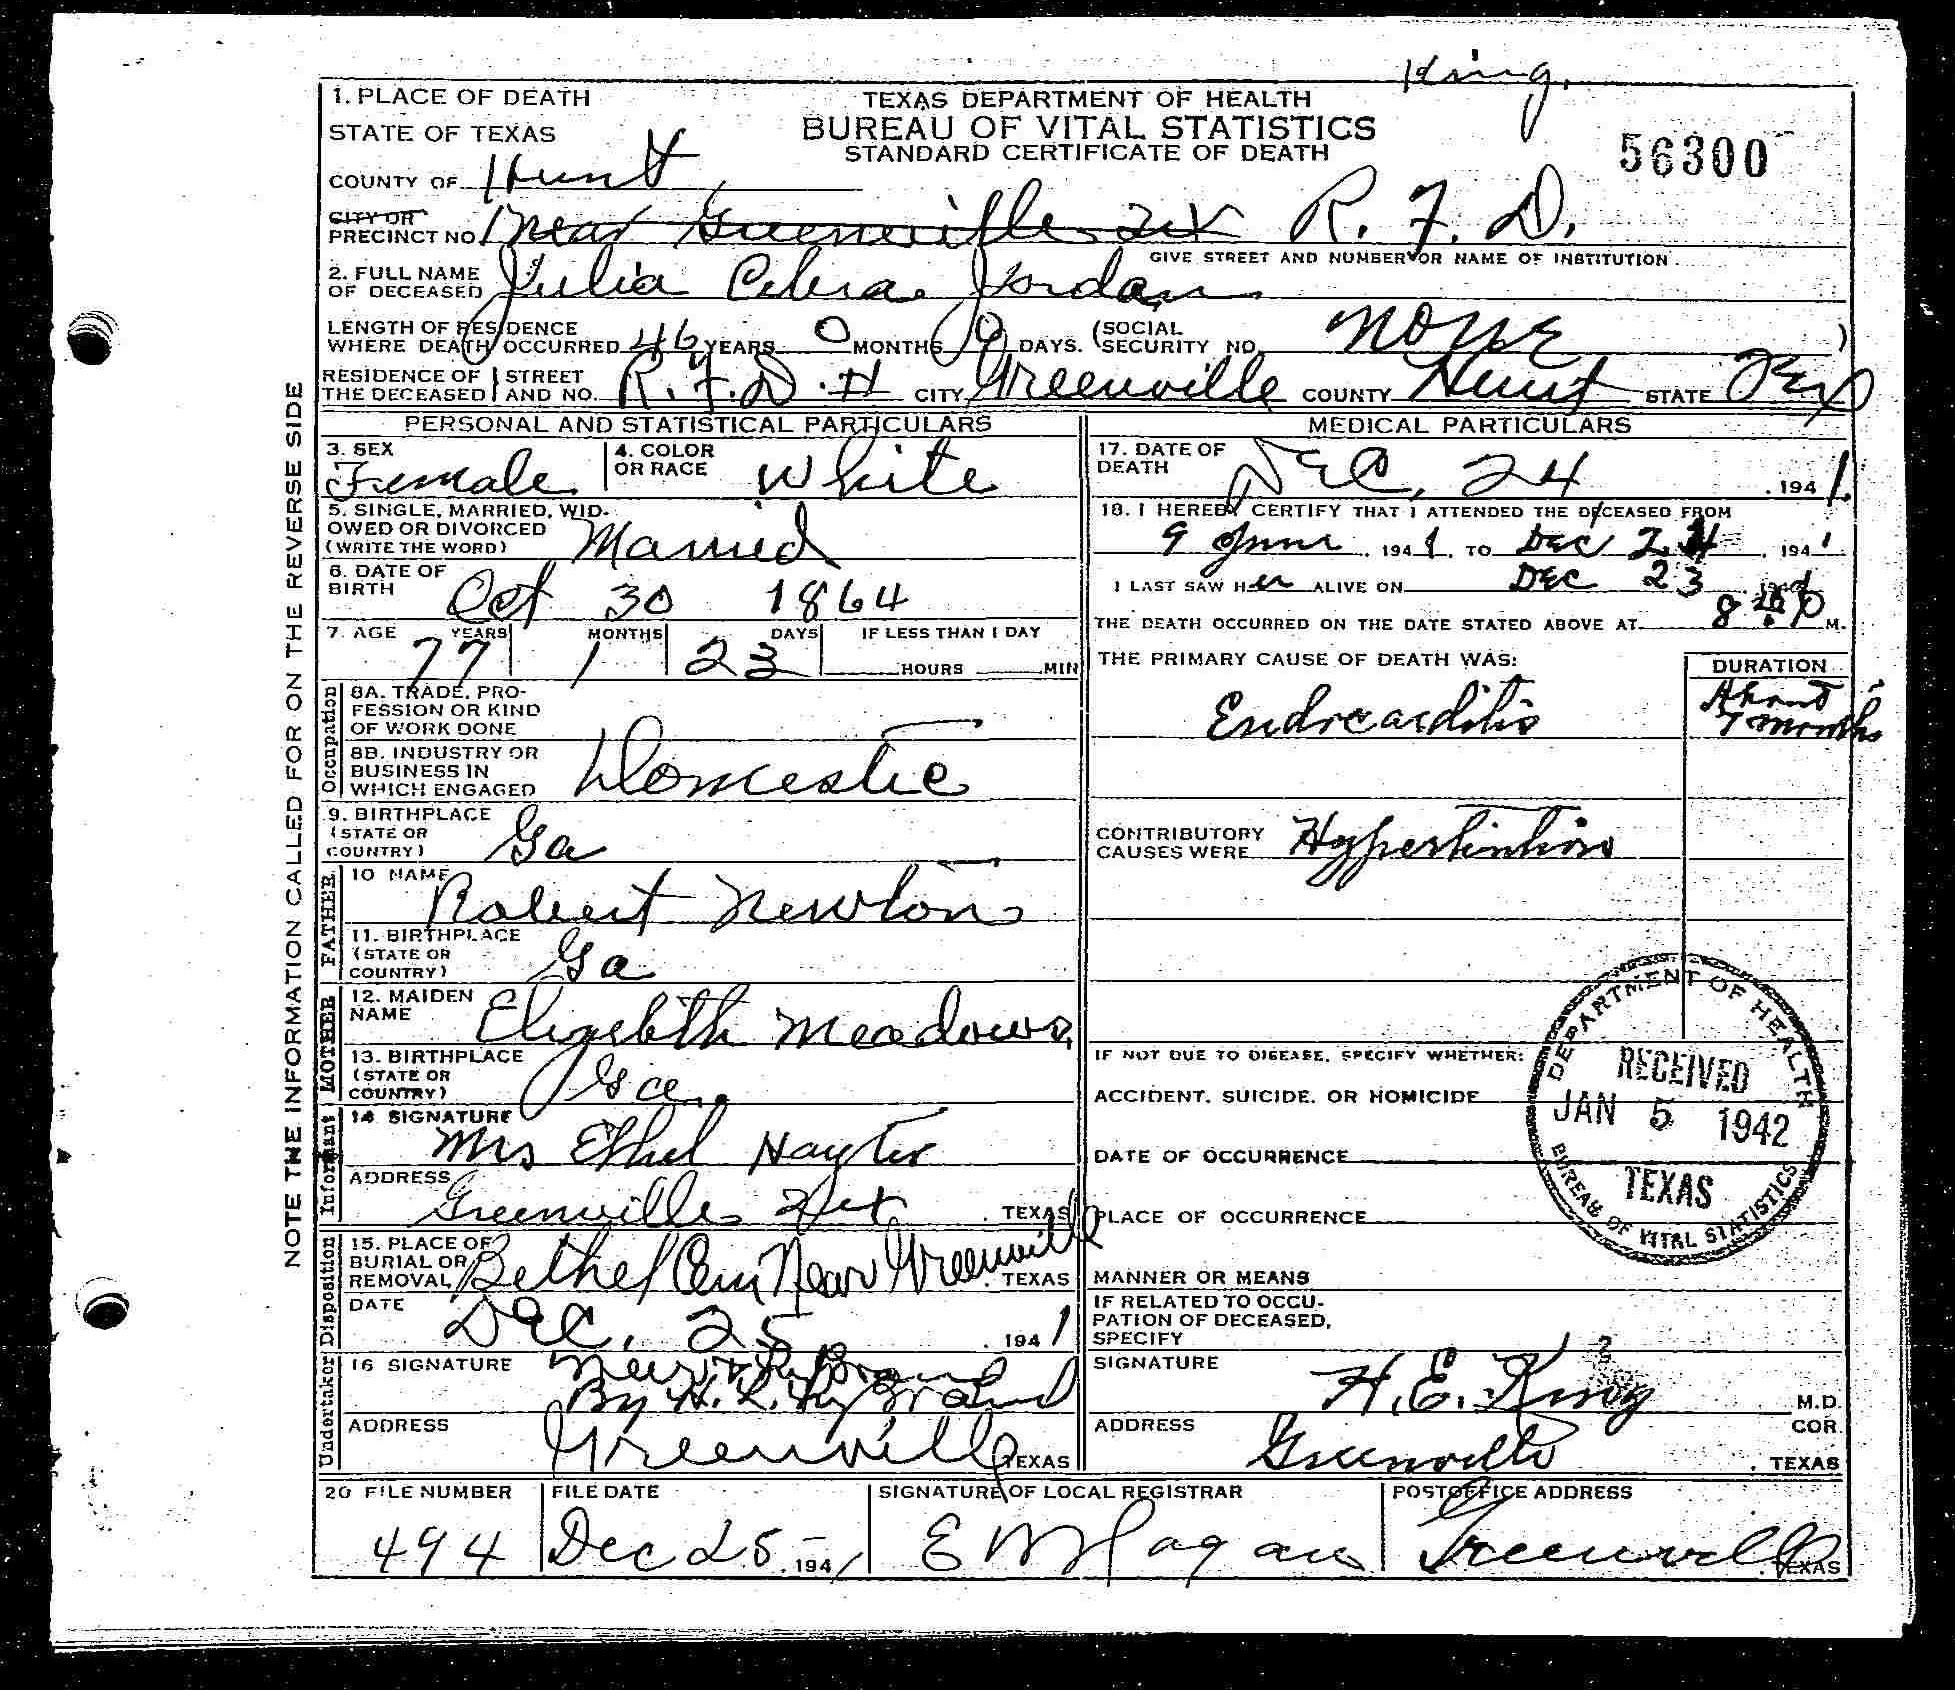 King,
1. PLACE OF DEATH
TEXAS DEPARTMENT OF HEALTH
STATE OF TEXAS
BUREAU OF VITAL STATISTICS
STANDARD CERTIFICATE OF DEATH
56300
COUNTY OF Hunt
CITY OR
PRECINCT NO. 1 near Greenville R. F. D.
GIVE STREET AND NUMBER OR NAME OF INSTITUTION
2. FULL NAME
OF DECEASED Julia Jordan
LENGTH OF RESIDENCE
WHERE DEATH OCCURRED 46 YEARS 0 MONTHS 0 DAYS. (SOCIAL
SECURITY NO. None )
RESIDENCE OF THE DECEASED STREET AND NO. R.F.D. CITY Greenville COUNTY Hunt STATE Tex
PERSONAL AND STATISTICAL PARTICULARS
3. SEX
Female
4. COLOR
OR RACE White
5. SINGLE, MARRIED, WID-
OWED OR DIVORCED
(WRITE THE WORD) Married
6. DATE OF
BIRTH Oct 30 1864
7. AGE YEARS MONTHS DAYS IF LESS THAN 1 DAY
77 1 23 HOURS MIN
Occupation
8A. TRADE, PRO-
FESSION OR KIND
OF WORK DONE
8B. INDUSTRY OR
BUSINESS IN
WHICH ENGAGED Domestic
9. BIRTHPLACE
(STATE OR
COUNTRY) Ga
FATHER
10 NAME Robert Newton
11. BIRTHPLACE
(STATE OR
COUNTRY) Ga
MOTHER
12. MAIDEN
NAME Elizabeth Meadows
13. BIRTHPLACE
(STATE OR
COUNTRY) Ga.
Informant
14 SIGNATURE
Mrs Ethel Hayter
ADDRESS
Greenville Tex . TEXAS
Disposition
15. PLACE OF
BURIAL OR
REMOVAL Bethel Cem Near Greenville . TEXAS
DATE
Dec. 25 . 1941
Undertaker
16 SIGNATURE
By H. L.
ADDRESS
Greenville TEXAS
MEDICAL PARTICULARS
17. DATE OF
DEATH Dec, 24 . 1941.
18. I HEREBY CERTIFY THAT I ATTENDED THE DECEASED FROM
9 June , 1941, TO Dec 24 , 1941
I LAST SAW Her ALIVE ON Dec 23
THE DEATH OCCURRED ON THE DATE STATED ABOVE AT 8 P M.
THE PRIMARY CAUSE OF DEATH WAS:
DURATION
Endrcarditis
About
7 months
CONTRIBUTORY
CAUSES WERE Hypertintion
IF NOT DUE TO DISEASE, SPECIFY WHETHER:
ACCIDENT, SUICIDE, OR HOMICIDE
DATE OF OCCURRENCE
PLACE OF OCCURRENCE
MANNER OR MEANS
IF RELATED TO OCCU-
PATION OF DECEASED,
SPECIFY
SIGNATURE
H. E. King M.D.
ADDRESS COR.
Greenville . TEXAS
DEPARTMENT OF HEALTH
RECEIVED
JAN 5 1942
TEXAS
BUREAU OF VITAL STATISTICS
20 FILE NUMBER FILE DATE SIGNATURE OF LOCAL REGISTRAR POSTOFFICE ADDRESS
494 Dec 25 , 1941 Greenville . TEXAS
NOTE THE INFORMATION CALLED FOR ON THE REVERSE SIDE